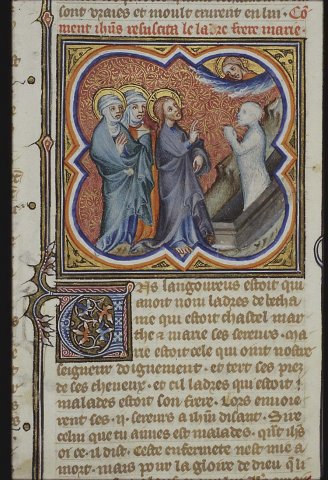 sont vraies et moult crurent en lui. Co
ment ihūs resuscita le ladre frere marie.
Uns langoureus estoit qui
auoit nom ladres de betha
nie qui estoit chastel mar
the & marie ses sereurs. Ma
rie estoit cele qui oinst nostre
seigneur doignement. et tert ses piez
de ses cheueus. et cil ladres qui estoit
malades estoit son frere. Lors enuoie
rent ses .ij. sereurs a ihū disant. Sire
celui que tu aimes est malades. quāt ihūs
or ce. il dist. Ceste enfermete nest mie a
mort. mais pour la gloire de dieu q̄ li